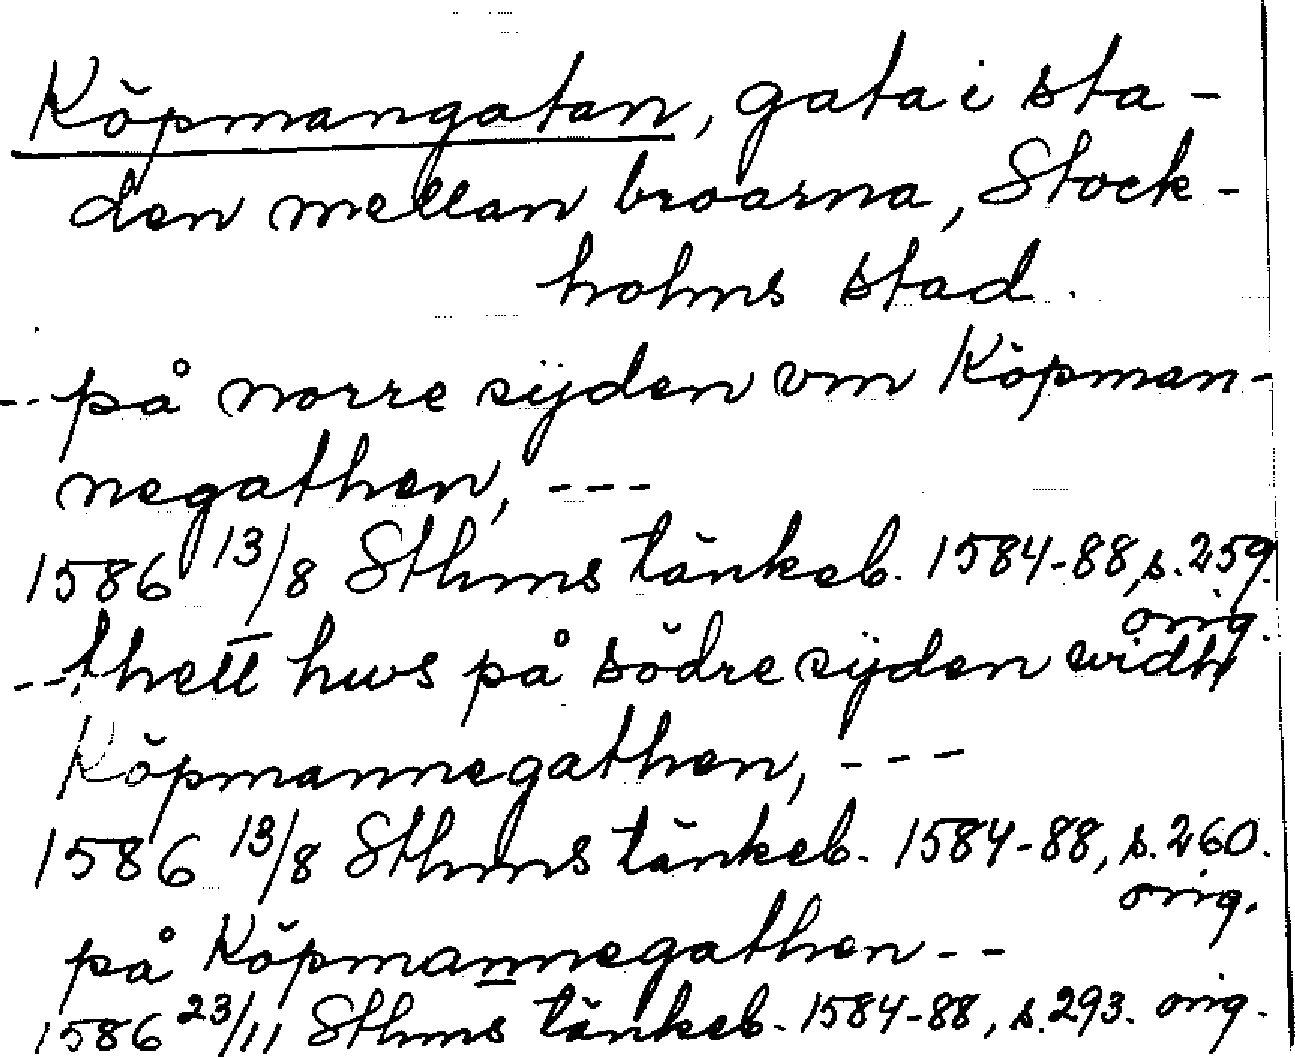 Köpmangatan, gata i sta-
den mellan broarna, Stock-
holms stad.
-- på norre sijden vm Köpman-
negathen, ---
1586 13/8 Sthms tänkeb. 1584-88, s. 259.
orig.
--- thett hws på södre sijden widh
Köpmannegathen, ---
1586 13/8 Sthms tänkeb. 1584-88, s. 260.
orig.
på Köpmannegathen --
1586 23/11 Sthms tänkeb. 1584-88, s. 293. orig.